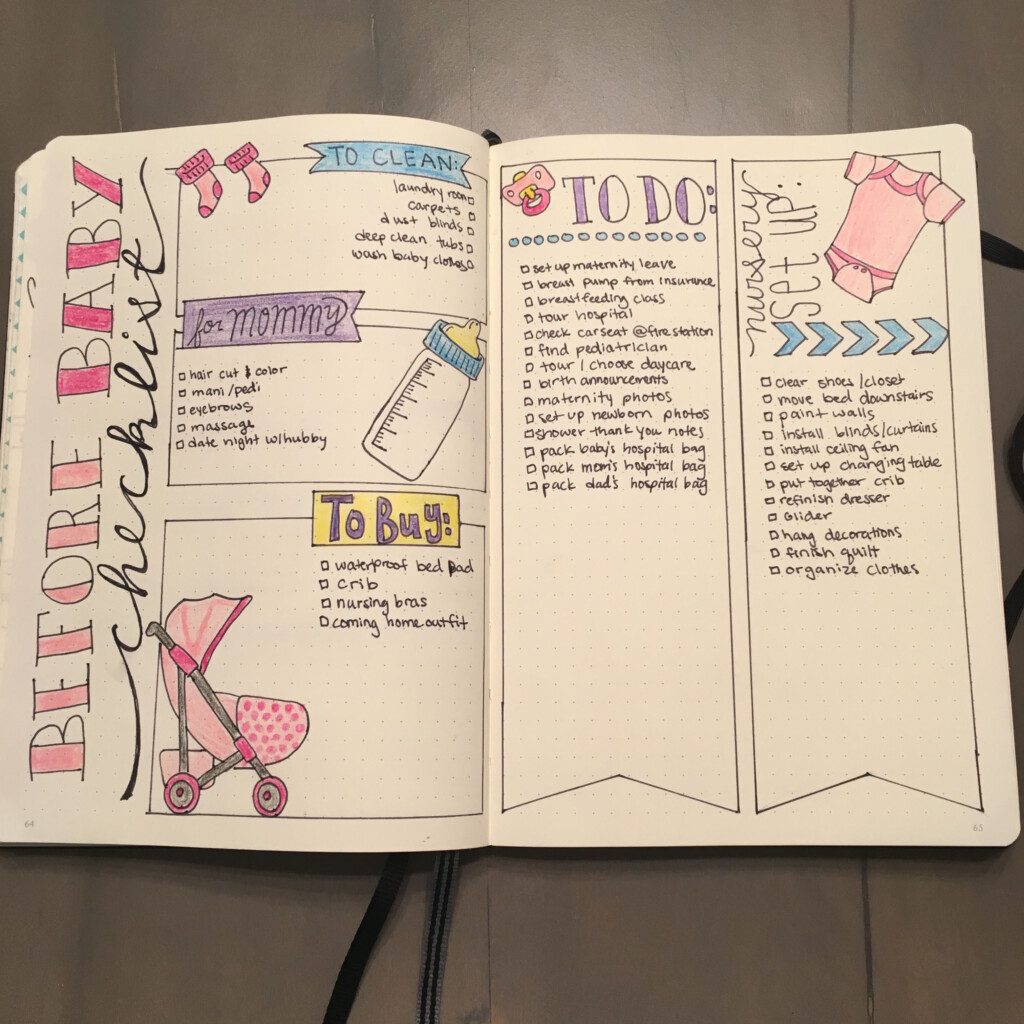 BEFORE BABY
checklist
TO CLEAN:
laundry room
carpets
dust blinds
deep clean tubs
wash baby clothes
for mommy
hair cut & color
mani/pedi
eyebrows
massage
date night w/hubby
To Buy:
waterproof bed pad
crib
nursing bras
coming home outfit
64
TO DO:
set up maternity leave
breast pump from insurance
breastfeeding class
tour hospital
check carseat @ fire station
find pediatrician
tour / choose daycare
birth announcements
maternity photos
set up newborn photos
shower thank you notes
pack baby's hospital bag
pack mom's hospital bag
pack dad's hospital bag
nursery
set up:
clear shoes/closet
move bed downstairs
paint walls
install blinds/curtains
install ceiling fan
set up changing table
put together crib
refinish dresser
Glider
hang decorations
finish quilt
organize clothes
65